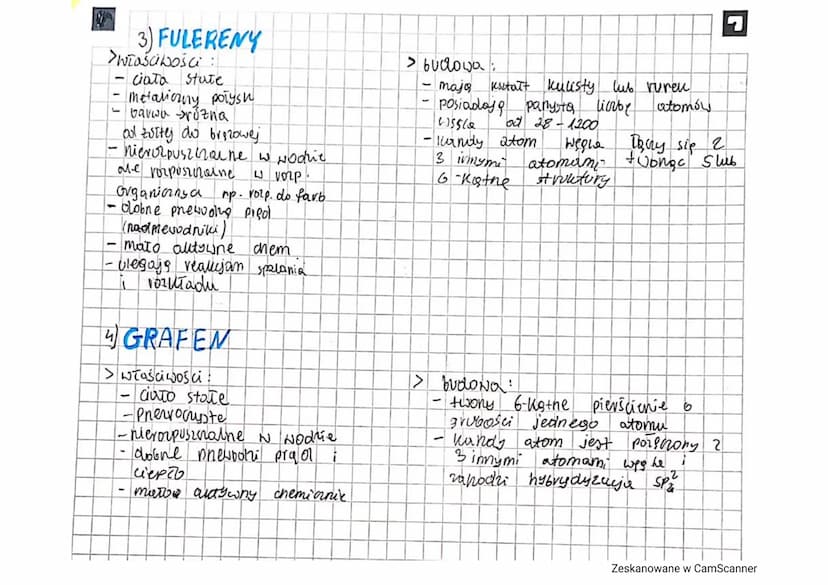 3) FULERENY
> właściwości :
- ciała stałe
- metaliczny połysk
- barwa różna
od żółtej do brązowej
- nierozpuszczalne w wodzie
ale rozpuszczalne w rozp.
organicznych np. rozp. do farb
- dobrze przewodzą prąd
(nadprzewodniki)
- mało aktywne chem
- ulegają reakcjom spalania
i rozkładu
> budowa :
- mają kształt kulisty lub rurek
- posiadają parzystą liczbę atomów
węgla od 28-1200
- każdy atom węgla łączy się z
3 innymi atomami tworząc 5 lub
6-kątne struktury
4) GRAFEN
> właściwości :
- ciało stałe
- przezroczyste
- nierozpuszczalne w wodzie
- dobrze przewodzi prąd i
ciepło
- mało aktywny chemicznie
> budowa :
- tworzy 6-kątne pierścienie o
grubości jednego atomu
- każdy atom jest połączony z
3 innymi atomami węgla i
zachodzi hybrydyzacja sp²
Zeskanowane w CamScanner